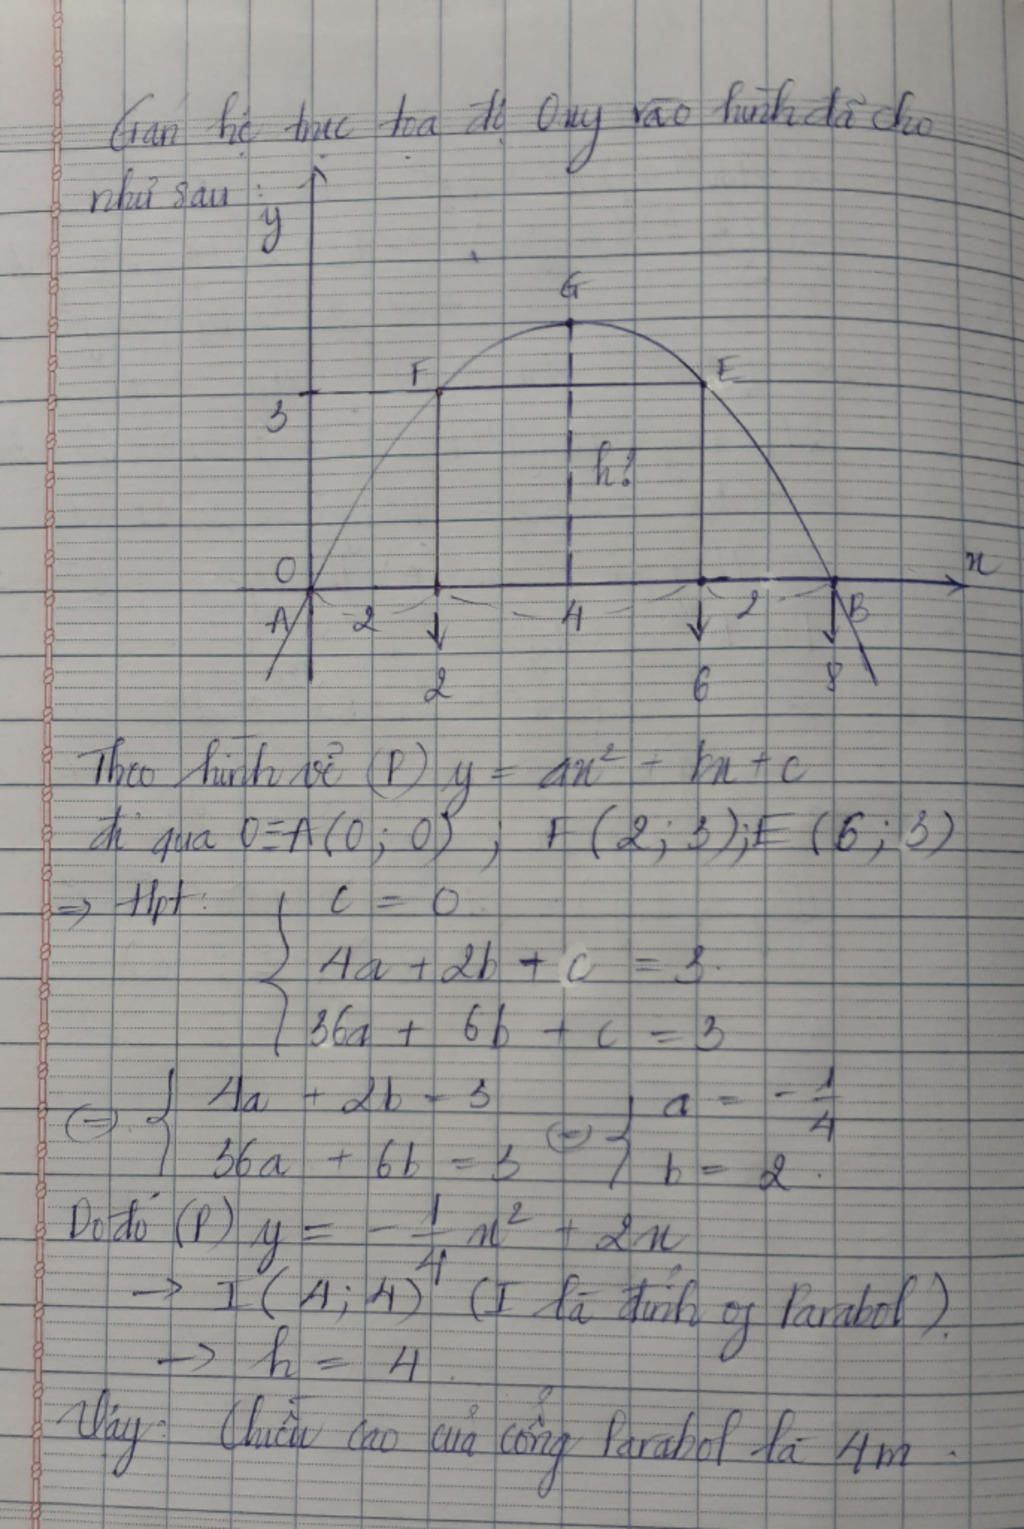 Gán hệ trục tọa độ Oxy vào hình đã cho
như sau :
y
G
F
E
3
h?
O
x
A
2
4
2
B
2
6
8
Theo hình vẽ (P) y = ax² + bx + c
đi qua O≡A(0 ; 0) ; F(2 ; 3); E(6 ; 3)
=> Hpt:
c = 0
4a + 2b + c = 3.
36a + 6b + c = 3
(=) { 4a + 2b = 3
36a + 6b = 3
(=) { a = -1/4
b = 2.
Do đó (P) y = -1/4 x² + 2x
→ I(4; 4) (I là đỉnh of Parabol).
→ h = 4
Vậy: Chiều cao của cổng Parabol là 4m.